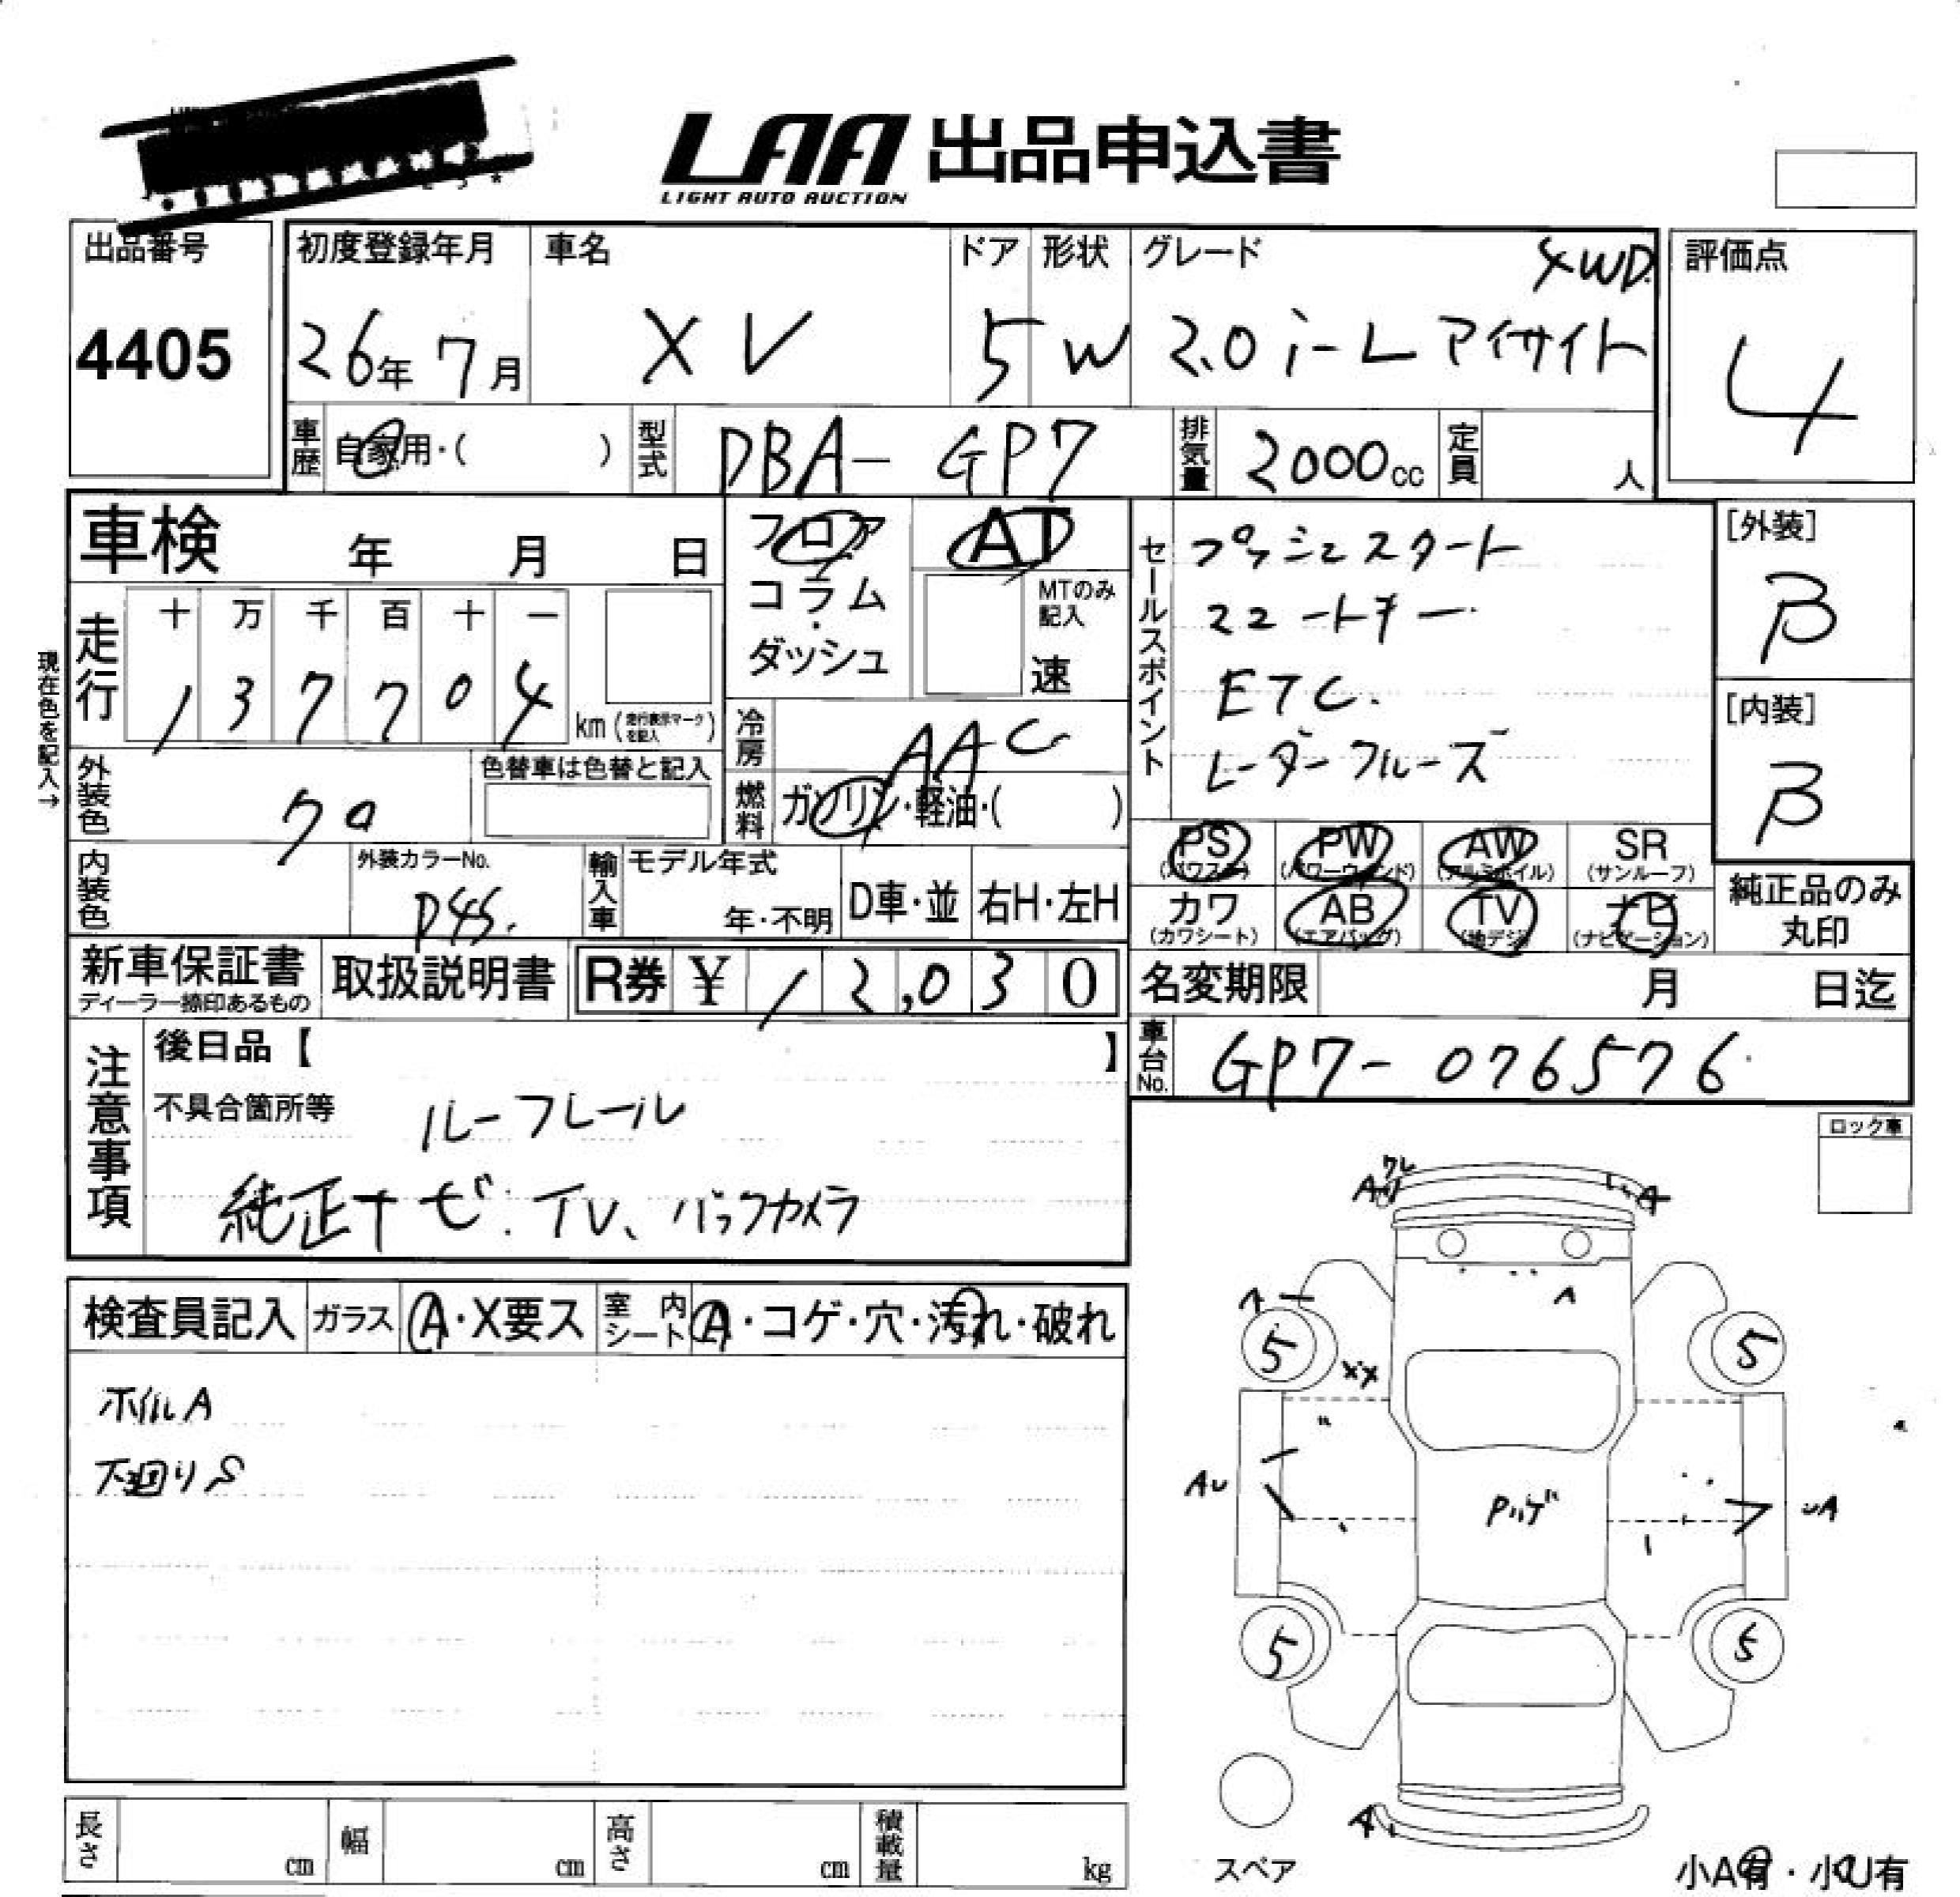 LAA 出品申込書
LIGHT AUTO AUCTION
出品番号
4405
初度登録年月
26年 7月
車名
XV
ドア
5
形状
W
グレード
4WD
2.0i-L アイサイト
評価点
4
車歴
自家用・( )
型式
DBA- GP7
排気量
2000cc
定員
人
車検 年 月 日
フロア
コラム
・
ダッシュ
AT
MTのみ
記入
速
セールスポイント
プッシュスタート
スマートキー
ETC.
レーダークルーズ
[外装]
B
[内装]
B
現在色を記入→
走行
十 万 千 百 十 一
1 3 7 7 0 4
km (走行表示マークを記入)
冷房
AAC
燃料
ガソリン・軽油・( )
外装色
クロ
色替車は色替と記入
内装色
外装カラーNo.
D4S.
輸入車
モデル年式
年・不明
D車・並
右H・左H
PS
(パワステ)
PW
(パワーウィンド)
AW
(アルミホイル)
SR
(サンルーフ)
カワ
(カワシート)
AB
(エアバッグ)
TV
(地デジ)
ナビ
(ナビゲーション)
純正品のみ
丸印
新車保証書
ディーラー捺印あるもの
取扱説明書
R券 ¥ 12,030
名変期限 月 日迄
車台No.
GP7- 076576
注意事項
後日品【 】
不具合箇所等
ルーフレール
純正ナビ. TV、バックカメラ
ロック車
検査員記入
ガラス
A・X要ス
室内シート
A・コゲ・穴・汚れ・破れ
ホイルA
下廻りS
A
A
A
A
5
5
XX
AU
Pハゲ
UA
5
5
A
スペア
小A有・小U有
長さ
cm
幅
cm
高さ
cm
積載量
kg